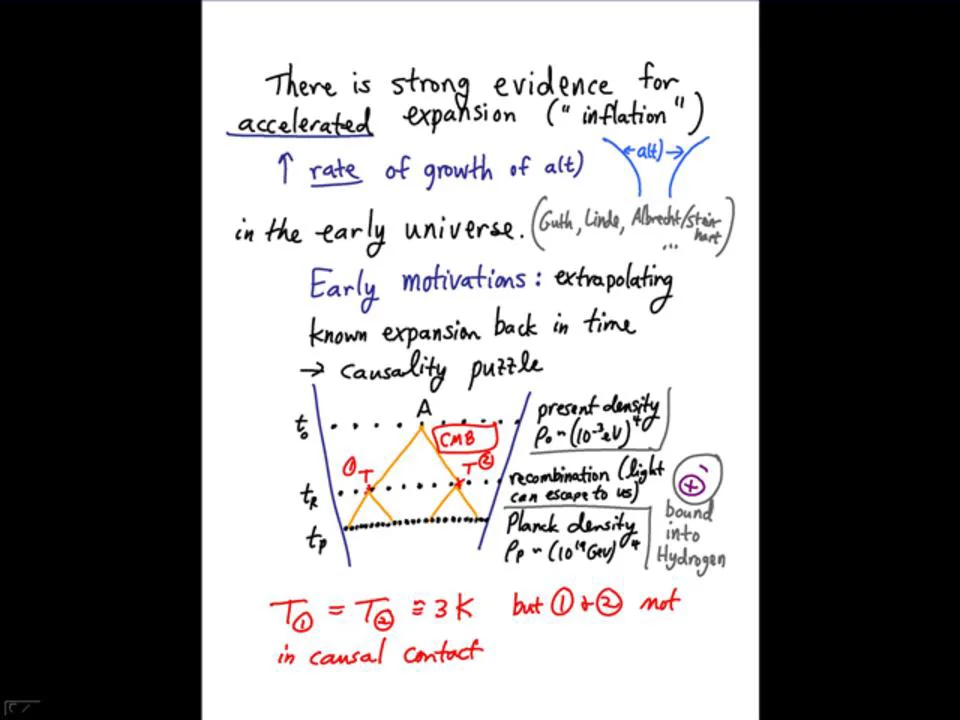 There is strong evidence for
accelerated expansion ("inflation")
↑ rate of growth of a(t)
← a(t) →
in the early universe. (Guth, Linde, Albrecht/Stein-
hart
...)
Early motivations: extrapolating
known expansion back in time
→ causality puzzle
A
t₀
CMB
present density
ρ₀ ~ (10⁻³ eV)⁴
① T
T ②
t_R
recombination (light
can escape to us)
+ -
bound
into
Hydrogen
t_P
Planck density
ρ_P ~ (10¹⁹ GeV)⁴
T① = T② ≅ 3 K but ① & ② not
in causal contact